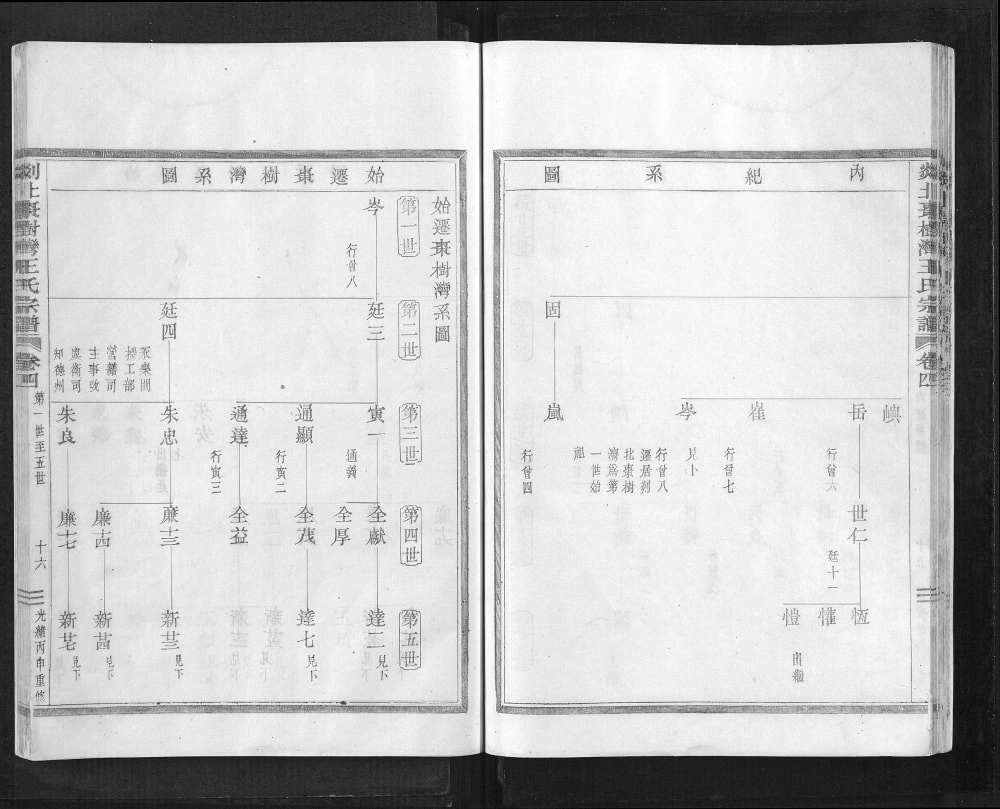 剡北棗樹灣王氏宗譜 卷四
內紀系圖
固
嶼
岳
行曾六
崔
行曾七
岑
見下
行曾八
遷居剡
北棗樹
灣為第
一世始
祖
嵐
行曾四
世仁
廷十一
恆
懽
愷
出繼
始遷棗樹灣系圖
始遷棗樹灣系圖
第一世
岑
行曾八
第二世
廷三
廷四
永樂間
授工部
營繕司
主事改
虞衡司
知德州
第三世
寅一
通義
通顯
行寅二
通達
行寅三
朱忠
朱良
第四世
全獻
全厚
全茂
全益
廉十三
廉十四
廉十七
第五世
達二
見下
達七
見下
新廿三
見下
新廿四
見下
新廿七
見下
剡北棗樹灣王氏宗譜 卷四
第一世至五世
十六
光緒丙申重修